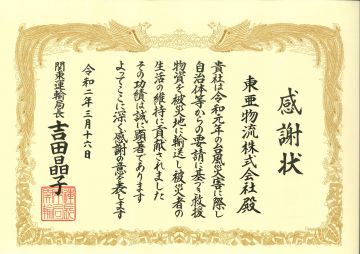 感謝状
東亜物流株式会社殿
貴社は令和元年の台風災害に際し
自治体等からの要請に基づき救援
物資を被災地に輸送し被災者の
生活の維持に貢献されました
その功績は誠に顕著であります
よってここに深く感謝の意を表します
令和二年三月十六日
関東運輸局長
吉田晶子